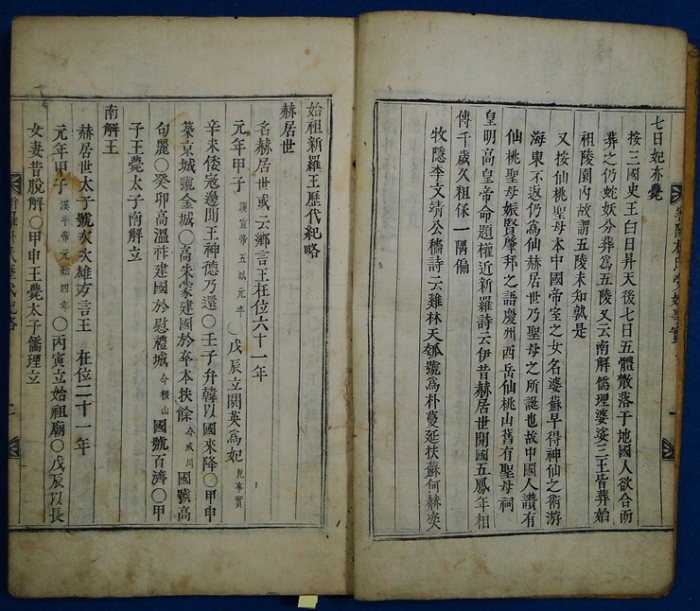 七日妃亦薨
按三國史王白日昇天後七日五體散落于地國人欲合而
葬之仍蛇妖分葬爲五陵又云南解儒理婆娑三王皆葬始
祖陵園內故謂五陵未知孰是
又按仙桃聖母本中國帝室之女名婆蘇早得神仙之術游
海東不返仍爲仙赫居世乃聖母之所誕也故中國人讚有
仙桃聖母娠賢肇邦之語慶州西岳仙桃山舊有聖母祠
皇明高皇帝命題權近新羅詩云伊昔赫居世開國五鳳年相
傳千歲久粗保一隅偏
牧隱李文靖公穡詩云雞林天瓠號爲朴蔓延扶蘇何赫奕
始祖新羅王歷代紀略
赫居世
名赫居世或云鄉言王在位六十一年
元年甲子漢宣帝五鳳元年○戊辰立閼英爲妃見事實
辛未倭寇邊聞王神德乃還○壬子弁韓以國來降○甲申
築京城號金城○高朱蒙建國於卒本扶餘今成川國號高
句麗○癸卯高溫祚建國於慰禮城今稷山國號百濟○甲
子王薨太子南解立
南解王
赫居世太子號次次雄方言王 在位二十一年
元年甲子漢平帝元始四年○丙寅立始祖廟○戊辰以長
女妻昔脫解○甲申王薨太子儒理立